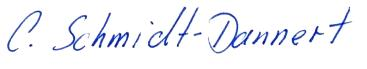 C. Schmidt-Dannert